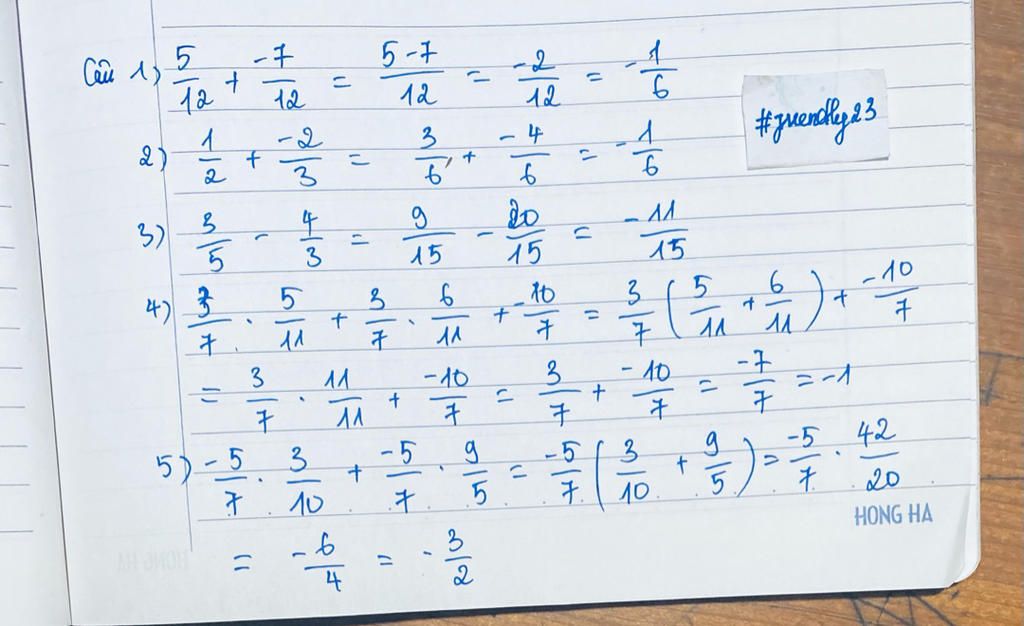 Câu 1) 5/12 + -7/12 = 5-7/12 = -2/12 = -1/6
#friendly23
2) 1/2 + -2/3 = 3/6 + -4/6 = -1/6
3) 3/5 - 4/3 = 9/15 - 20/15 = -11/15
4) 3/7 . 5/11 + 3/7 . 6/11 + -10/7 = 3/7 (5/11 + 6/11) + -10/7
= 3/7 . 11/11 + -10/7 = 3/7 + -10/7 = -7/7 = -1
5) -5/7 . 3/10 + -5/7 . 9/5 = -5/7 (3/10 + 9/5) = -5/7 . 42/20
HONG HA
= -6/4 = -3/2